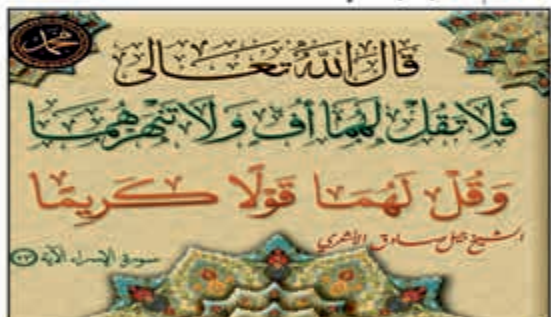 محمد
قال الله تعالى
فَلَا تَقُلْ لَهُمَا أُفٍّ وَلَا تَنْهَرْهُمَا
وَقُلْ لَهُمَا قَوْلًا كَرِيمًا
الشيخ جميل صادق الأشعري
سورة الإسراء الآية ٢٣